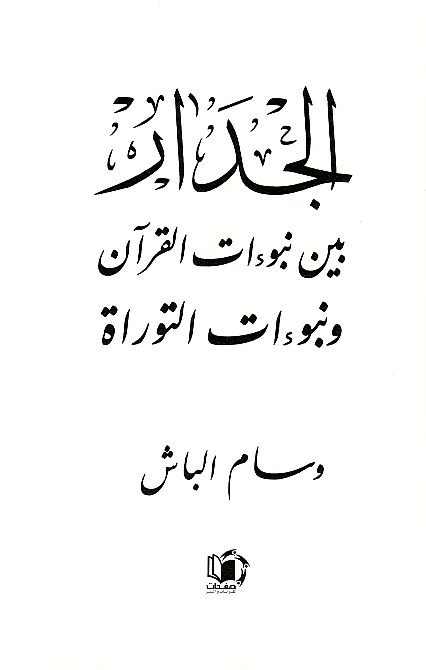 الجدار
بين نبوءات القرآن
ونبوءات التوراة
وسام الباش
صفحات
للدراسات والنشر